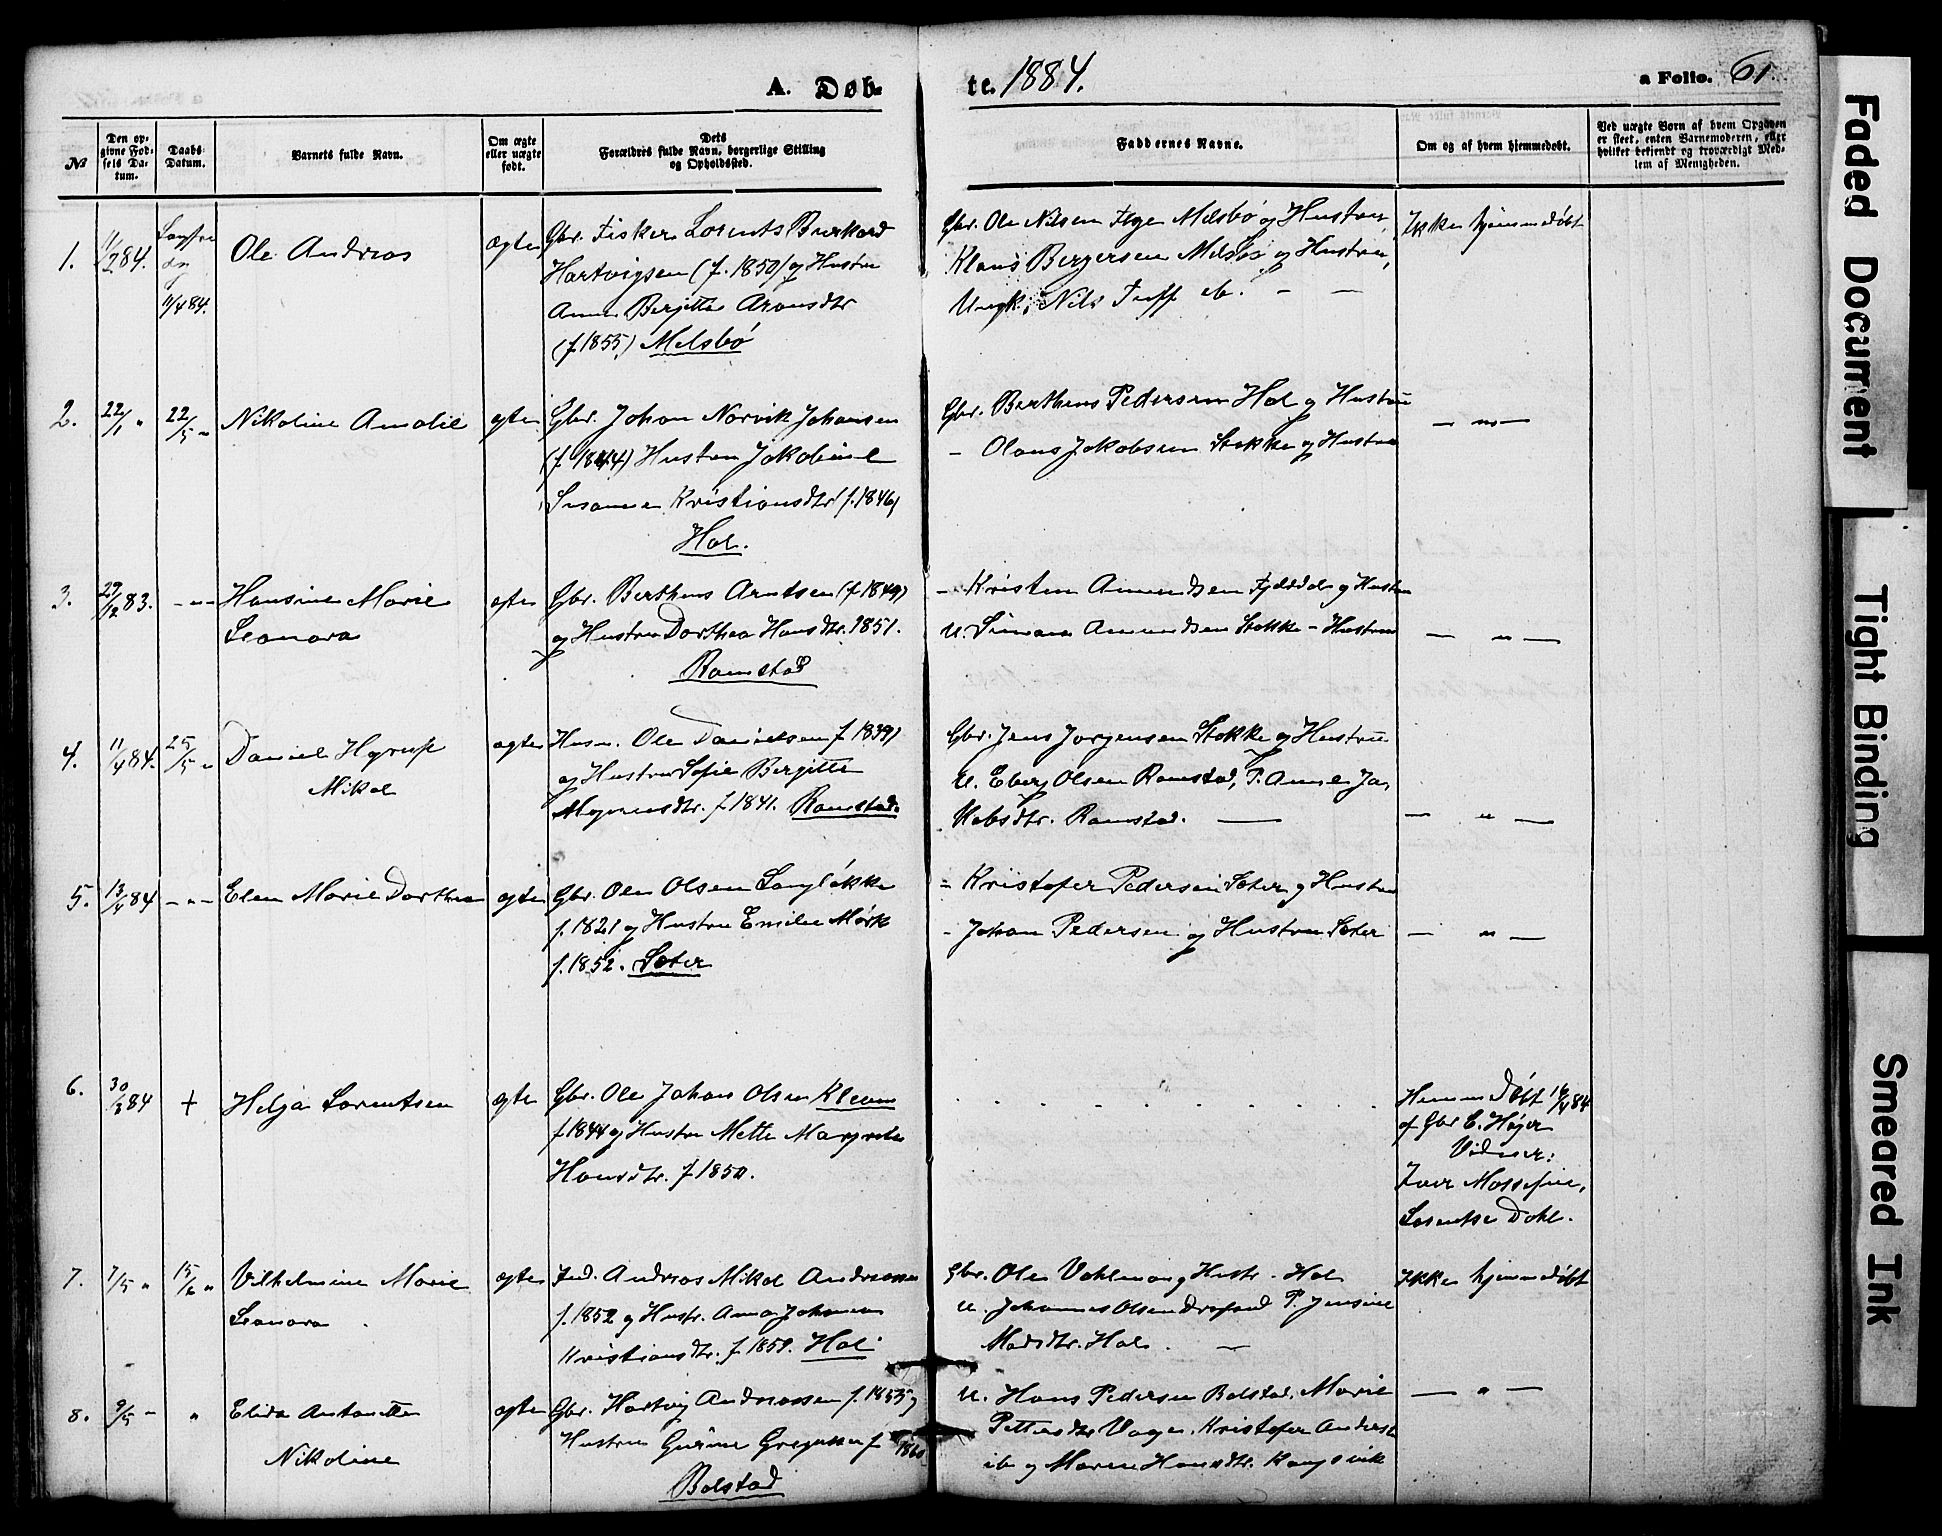 A. Døb-
te. 1884.
a Folio. 61.
№
Den op-
givne Fød-
sels Da-
tum.
Daabs
Datum.
Barnets fulde Navn.
Om ægte
eller uægte
født.
Dets
Forældres fulde Navn, borgerlige Stilling
og Opholdssted.
Faddernes Navne.
Om og af hvem hjemmedøbt.
Ved uægte Børn af hvem Opgaven
er skeet, enten Barnemoderen, eller
hvilket bekjendt og troværdigt Med-
lem af Menigheden.
1.
11/2 84.
11/4 84.
Ole Andreas
ægte
Gbr. Fisker Lorents Burkard
Hartvigsen (f. 1850) og Hustru
Anne Bergitte Arontsdtr
(f. 1855) Melsbø
Gbr. Ole Nilsen Melsbø og Hustru,
Klaus Bergersen Melsbø og Hustru,
Ungk. Nils Tuff ib. – –
Ikke hjemmedøbt
2.
22/1 "
22/5 "
Nikoline Amalie
ægte
Gbr. Johan Norvik Johansen
(f. 1844) Hustru Jakobine
Susanna Kristiansdtr (f. 1846)
Hol.
Gbr. Berthens Pedersen Hol og Hustru
– Olaus Jakobsen Stokke og Hustru
– " –
3.
29/12 83.
– " –
Hansine Marie
Leonora
ægte
Gbr. Berthens Arntsen (f. 1849)
og Hustru Dorthea Hansdtr. 1851.
Ramstad
– Kristen Amundsen og Hustru
U. Simon Amundsen Stokke – Hustru
– " –
4.
11/4 84.
25/5 "
Daniel Hyrup
Mikal
ægte
Husm. Ole Danielsen f. 1839)
og Hustru Sofie Bergitte
Mogensdtr. f. 1841. Ramstad.
Gbr. Jens Jørgensen Stokke og Hustru
U. Eberg Olsen Ramstad, P. Anne Ja-
kobsdtr. Ramstad. –
– " –
5.
13/4 84
– " –
Elen Marie Dorthea
ægte
Gbr. Ole Olsen Langløkke
f. 1821 og Hustru Emilie Mørk
f. 1852. Sæter
– Kristofer Pedersen Sæter og Hustru
– Johan Pedersen og Hustru Sæter
– " –
6.
30/3 84
+
Helja Lorentsen
ægte
Gbr. Ole Johan Olsen Kleven
f. 1844 og Hustru Mette Margrete
Hansdtr. f. 1850.
Hjemmedøbt 16/4 84
af Gbr E. Højer
Vidner:
Iver
Lorentse Dahl.
7.
7/5 "
15/6 "
Vilhelmine Marie
Leonora
ægte
Ind. Andreas Mikal Andreassen
f. 1852 og Hustr. Anna Johanna
Kristiansdtr. f. 1859. Hol
Gbr. Ole Valman og Hustr. Hol
U. Johannes Olsen P. Jensine
Madsdtr. Hol. –
Ikke hjemmedøbt
8.
9/5 –
"
Elida Antonette
Nikoline
ægte
Gbr. Hartvig Andreassen f. 1853 og
Hustru Gurine f 1860
Bolstad
U. Hans Pedersen Bolstad, Marie
Pettersdtr. Vage, Kristofer Anders.
ib og Maren Hansdtr. Kongsvik
– " –
Faded Document
Tight Binding
Smeared Ink